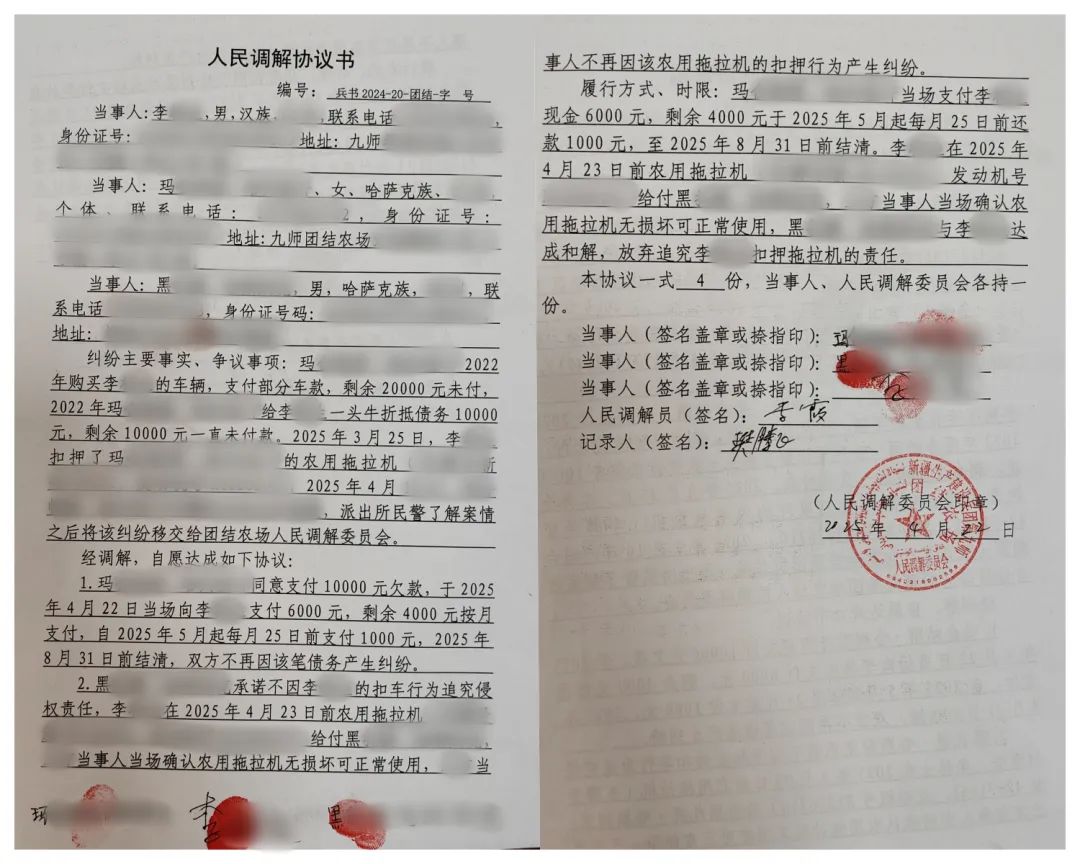 人民调解协议书
编号: 兵书2024-20-团结-字 号
当事人:李 ,男,汉族, ,联系电话 ,
身份证号: 地址:九师
当事人:玛 、女、哈萨克族、 、
个体、联系电话: 2,身份证号:
地址:九师团结农场
当事人:黑 ,男,哈萨克族, ,联
系电话 ,身份证号码:
地址:
纠纷主要事实、争议事项:玛 2022
年购买李 的车辆,支付部分车款,剩余20000元未付,
2022年玛 给李 一头牛折抵债务10000
元,剩余10000元一直未付款。2025年3月25日,李
扣押了玛 的农用拖拉机
2025年4月
,派出所民警了解案情
之后将该纠纷移交给团结农场人民调解委员会。
经调解,自愿达成如下协议:
1.玛 同意支付10000元欠款,于2025
年4月22日当场向李 支付6000元,剩余4000元按月
支付,自2025年5月起每月25日前支付1000元,2025年
8月31日前结清,双方不再因该笔债务产生纠纷。
2.黑 承诺不因李 的扣车行为追究侵
权责任,李 在2025年4月23日前农用拖拉机
给付黑 ,
当事人当场确认农用拖拉机无损坏可正常使用, 当
玛 李 黑
事人不再因该农用拖拉机的扣押行为产生纠纷。
履行方式、时限:玛 当场支付李
现金6000元,剩余4000元于2025年5月起每月25日前还
款1000元,至2025年8月31日前结清。李 在2025年
4月23日前农用拖拉机 发动机号
给付黑 , 当事人当场确认农
用拖拉机无损坏可正常使用,黑 与李 达
成和解,放弃追究李 扣押拖拉机的责任。
本协议一式 4 份,当事人、人民调解委员会各持一
份。
当事人(签名盖章或捺指印):玛
当事人(签名盖章或捺指印):黑
当事人(签名盖章或捺指印):
人民调解员(签名):李霞
记录人(签名):樊腾飞
(人民调解委员会印章)
2025年4月22日
新疆生产建设兵团第九师
团结农场
人民调解委员会